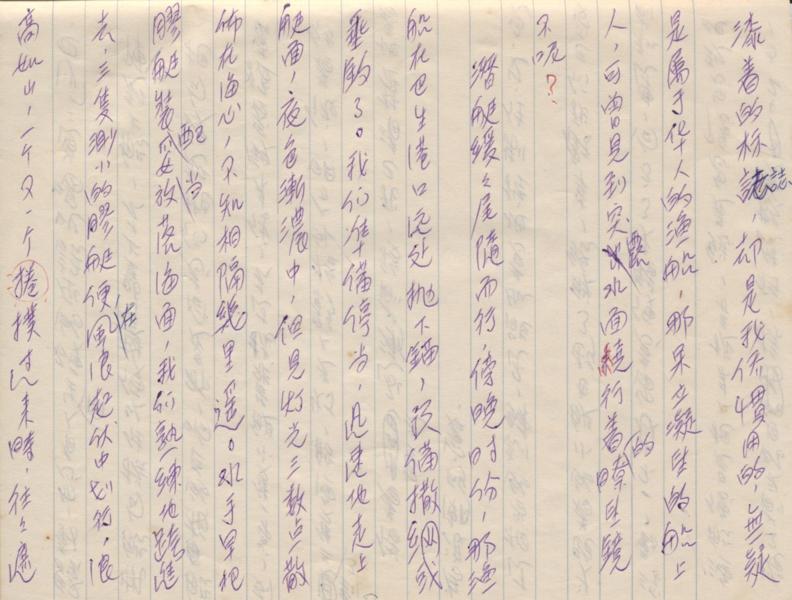 漆着的标誌，却是我侪慣用的，無疑
是属于华人的漁船，那呆立凝望的船上
人，可曾見到突露水面繞行着的瞭望鏡
不呢？
潛艇緩々尾隨而行，傍晚时份，那漁
船在巴生港口远处抛下錨，預備撒網或
垂釣了。我们準備停当，迅速地走上
艇面，夜色漸濃中，但見灯光三数点散
佈在海心，不知相隔幾里遥。水手早把
膠艇裝配妥当放落海面，我们熟練地跨進
去，三隻渺小的膠艇便在風浪起伏中划行，浪
高如山，一个又一个捲撲过来時，往々應